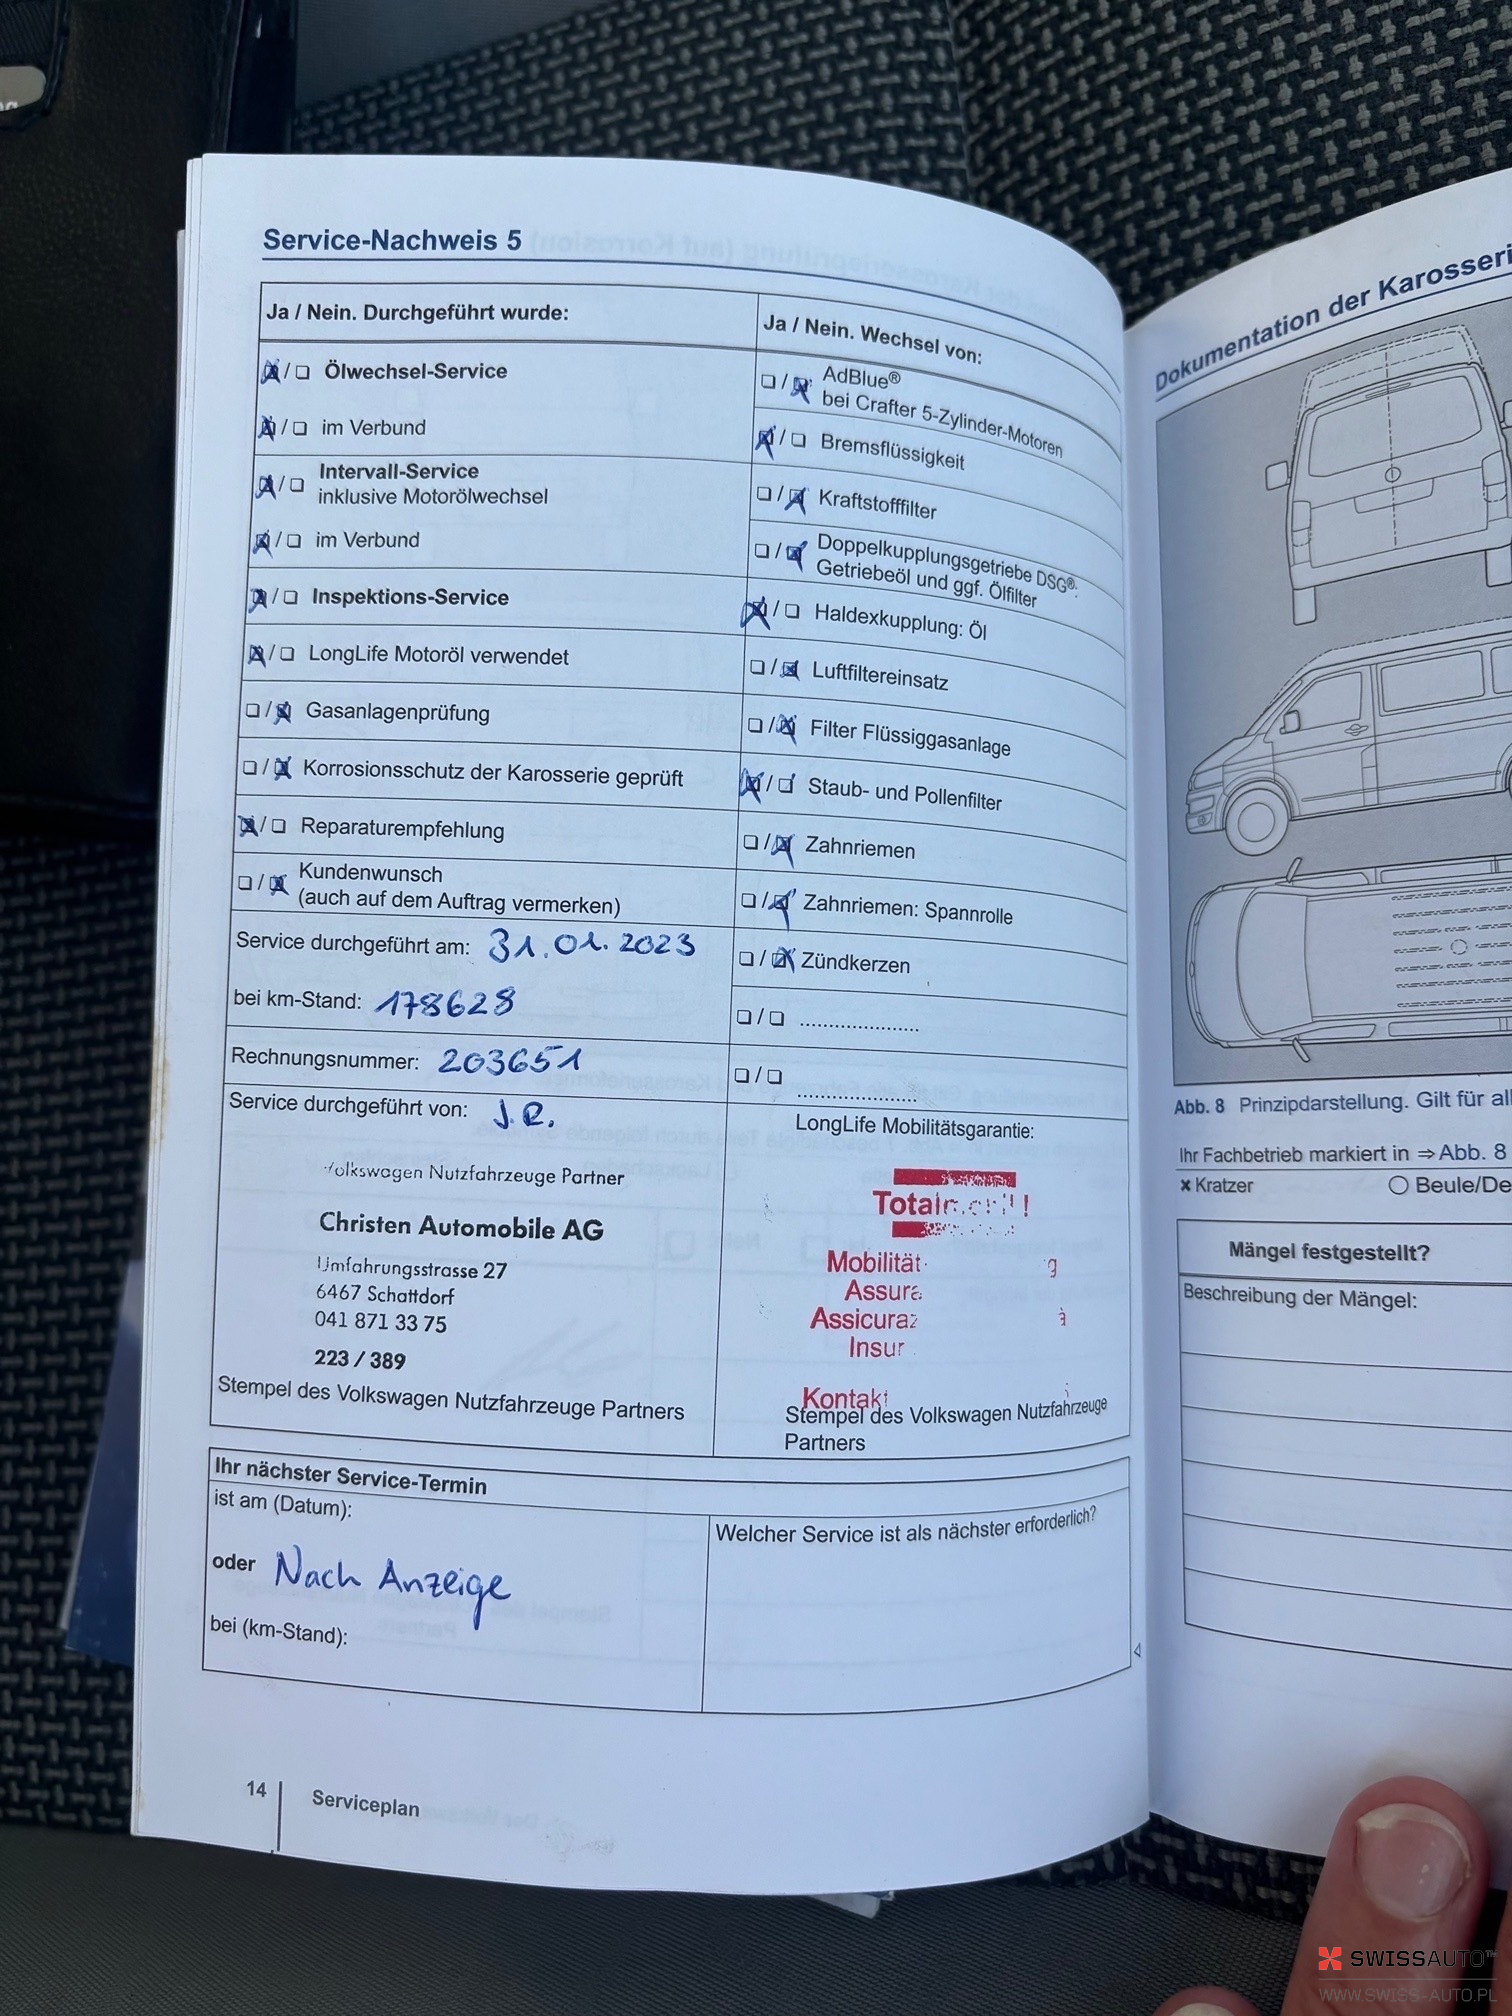 Service-Nachweis 5
Ja / Nein. Durchgeführt wurde:
☒ / ☐ Ölwechsel-Service
☒ / ☐ im Verbund
☒ / ☐ Intervall-Service
inklusive Motorölwechsel
☒ / ☐ im Verbund
☒ / ☐ Inspektions-Service
☒ / ☐ LongLife Motoröl verwendet
☐ / ☒ Gasanlagenprüfung
☐ / ☒ Korrosionsschutz der Karosserie geprüft
☒ / ☐ Reparaturempfehlung
☐ / ☒ Kundenwunsch
(auch auf dem Auftrag vermerken)
Service durchgeführt am: 31.01.2023
bei km-Stand: 178628
Rechnungsnummer: 203651
Service durchgeführt von: J.R.
Volkswagen Nutzfahrzeuge Partner
Christen Automobile AG
Umfahrungsstrasse 27
6467 Schattdorf
041 871 33 75
223 / 389
Stempel des Volkswagen Nutzfahrzeuge Partners
Ja / Nein. Wechsel von:
☐ / ☒ AdBlue®
bei Crafter 5-Zylinder-Motoren
☒ / ☐ Bremsflüssigkeit
☐ / ☒ Kraftstofffilter
☐ / ☒ Doppelkupplungsgetriebe DSG®:
Getriebeöl und ggf. Ölfilter
☒ / ☐ Haldexkupplung: Öl
☐ / ☒ Luftfiltereinsatz
☐ / ☒ Filter Flüssiggasanlage
☒ / ☐ Staub- und Pollenfilter
☐ / ☒ Zahnriemen
☐ / ☒ Zahnriemen: Spannrolle
☐ / ☒ Zündkerzen
☐ / ☐ .....................
☐ / ☐ .....................
LongLife Mobilitätsgarantie:
Mobilität
Kontakt
Stempel des Volkswagen Nutzfahrzeuge
Partners
Ihr nächster Service-Termin
ist am (Datum):
oder Nach Anzeige
bei (km-Stand):
Welcher Service ist als nächster erforderlich?
14 Serviceplan
Dokumentation der Karosseri
Abb. 8 Prinzipdarstellung. Gilt für al
Ihr Fachbetrieb markiert in ⇒ Abb. 8
× Kratzer ○ Beule/De
Mängel festgestellt?
Beschreibung der Mängel:
SWISSAUTO™
WWW.SWISS-AUTO.PL